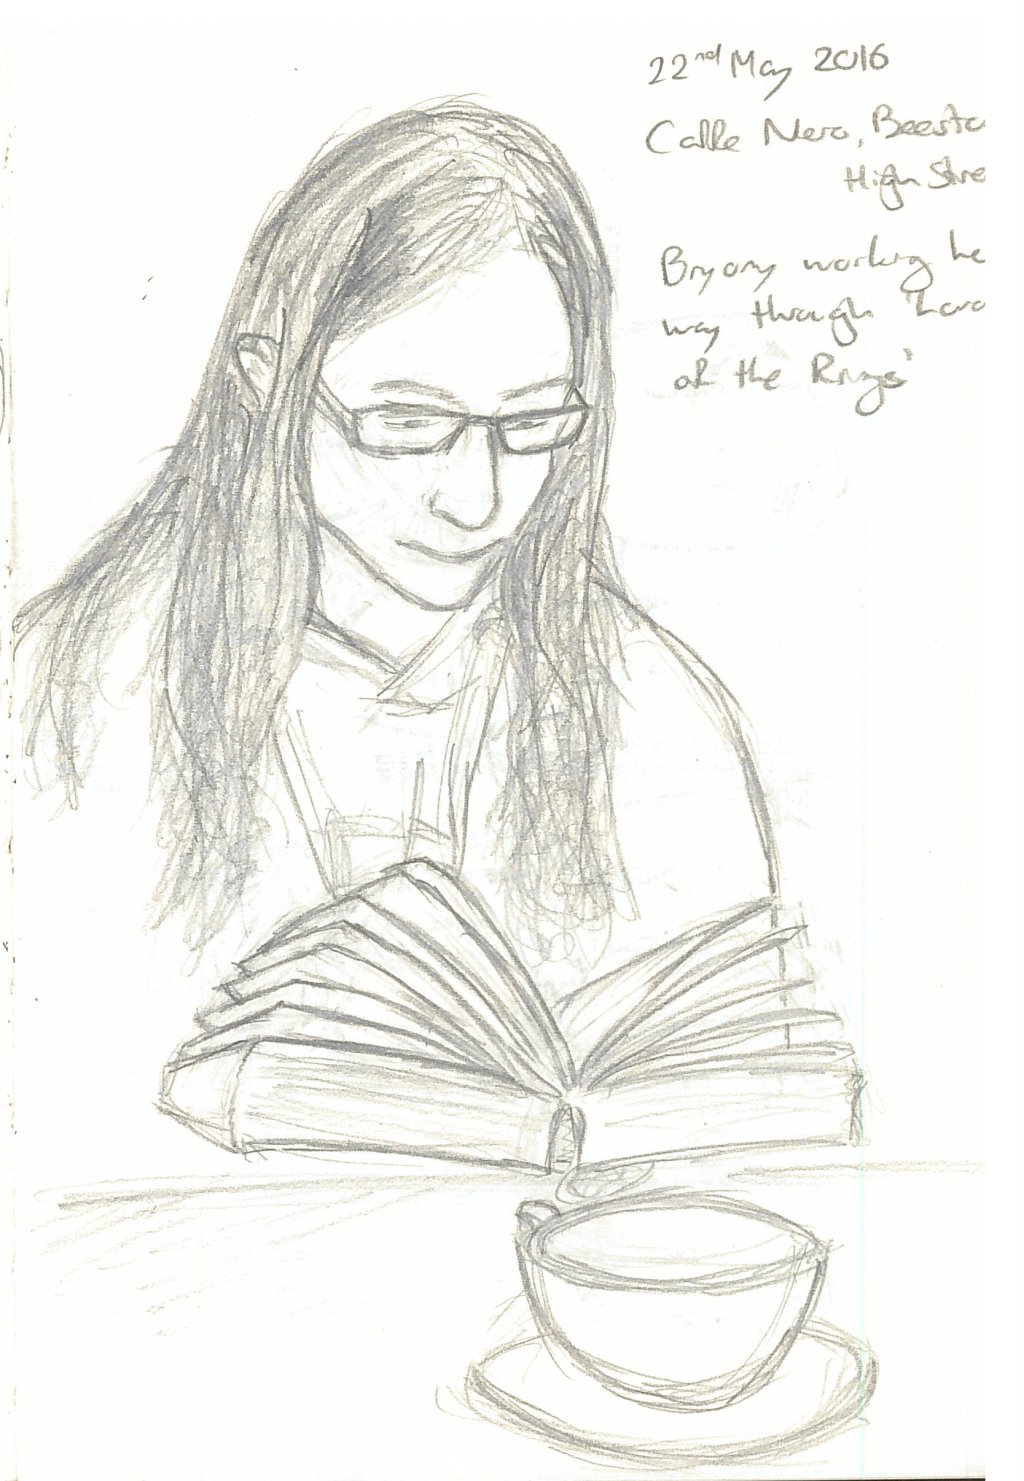 22nd May 2016
Caffe Nero, Beesto
High Stre
Bryony working he
way through 'Lord
of the Rings'